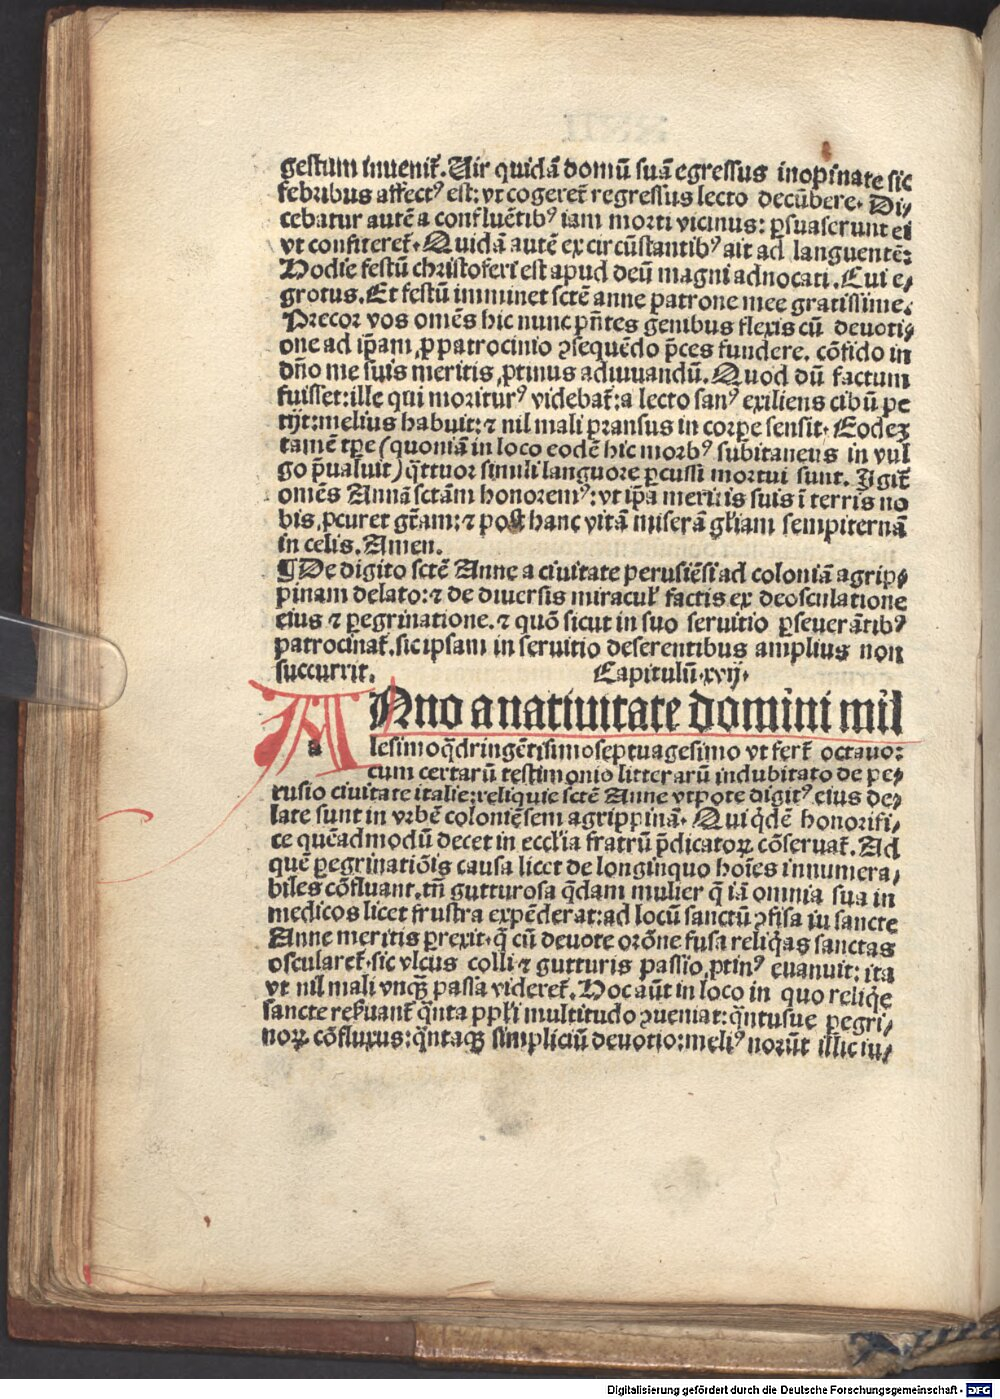 gestum inuenit̃. Uir quidã domũ suã egressus inopinate sic
febribus affectꝰ est: vt cogeret̃ regressus lecto decũbere. Di⸗
cebatur autẽ a confluẽtibꝰ iam morti vicinus: ꝑsuaserunt ei
vt confiteret̃. Quidã autẽ ex circũstantibꝰ ait ad languentẽ:
Hodie festũ christoferi est apud deũ magni aduocati. Cui e⸗
grotus. Et festũ imminet sctẽ anne patrone mee gratissime.
Precor vos omẽs hic nunc pñtes genibus flexis cũ deuoti⸗
one ad ip̃am, ꝓ patrocinio ꝯsequẽdo p̃ces fundere. cõfido in
dño me suis meritis ꝓtinus adiuuandũ. Quod dũ factum
fuisset: ille qui moriturꝰ videbat̃: a lecto sanꝰ exiliens cibũ pe
tijt: melius habuit: ⁊ nil mali pransus in corꝑe sensit. Eodeꝫ
tamẽ tꝑe (quoniã in loco eodẽ hic morbꝰ subitaneus in vul
go p̃ualuit) q̃ttuor simili languore ꝑcussi mortui sunt. Igit̃
omẽs Annã sctãm honoremꝰ: vt ip̃a meritis suis ĩ terris no
bis ꝓcuret gr̃am: ⁊ post hanc vitã miserã gl̃iam sempiternã
in celis. Amen.
¶ De digito sctẽ Anne a ciuitate perusiẽsi ad coloniã agrip⸗
pinam delato: ⁊ de diuersis miracul̃ factis ex deosculatione
eius ⁊ ꝑegrinatione. ⁊ quõ sicut in suo seruitio ꝑseuerãtibꝰ
patrocinat̃. sic ipsam in seruitio deserentibus amplius non
succurrit. Capitulũ. xxvij.
ANno a natiuitate domini mil
lesimo q̃dringẽtisimo septuagesimo vt fert̃ octauo:
cum certarũ testimonio litterarũ indubitato de pe⸗
rusio ciuitate italie: reliquie sctẽ Anne vtpote digitꝰ eius de⸗
late sunt in vrbẽ coloniẽsem agrippinã. Qui q̃dẽ honorifi⸗
ce quẽadmodũ decet in eccl̃ia fratrũ p̃dicatoꝝ cõseruat̃. Ad
quẽ ꝑegrinatiõis causa licet de longinquo hoĩes innumera⸗
biles cõfluant. tñ gutturosa q̃dam mulier q̃ iã omnia sua in
medicos licet frustra expẽderat: ad locũ sanctũ ꝯfisa ĩn sancte
Anne meritis ꝑrexit. q̃ cũ deuote orõne fusa reliq̃as sanctas
oscularet̃. sic vlcus colli ⁊ gutturis passio ꝓtinꝰ euanuit: ita
vt nil mali vnq̃ꝫ passa videret̃. Hoc aũt in loco in quo reliq̃e
sancte reẜuant̃ q̃nta pp̃li multitudo ꝯueniat: q̃ntusue ꝑegri⸗
noꝝ cõfluxus: q̃ntaqꝫ simpliciũ deuotio: meliꝰ norũt illic iu⸗
Digitalisierung gefördert durch die Deutsche Forschungsgemeinschaft - DFG